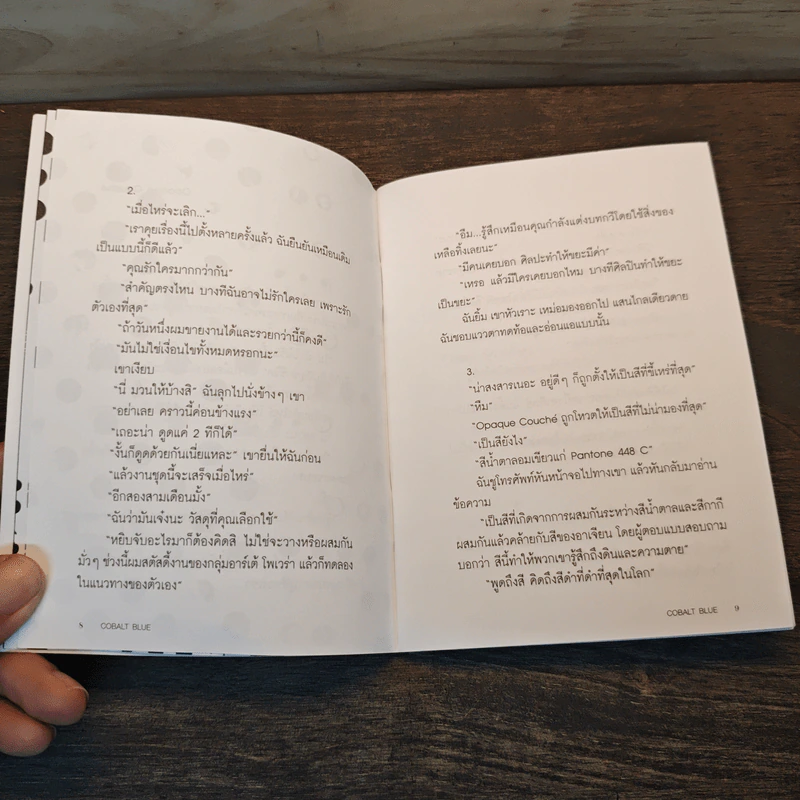 2.
"เมื่อไหร่จะเลิก..."
"เราคุยเรื่องนี้ไปตั้งหลายครั้งแล้ว ฉันยืนยันเหมือนเดิม
เป็นแบบนี้ก็ดีแล้ว"
"คุณรักใครมากกว่ากัน"
"สำคัญตรงไหน บางทีฉันอาจไม่รักใครเลย เพราะรัก
ตัวเองที่สุด"
"ถ้าวันหนึ่งผมขายงานได้และรวยกว่านี้ก็คงดี"
"มันไม่ใช่เงื่อนไขทั้งหมดหรอกนะ"
เขาเงียบ
"นี่ มวนให้บ้างสิ" ฉันลุกไปนั่งข้างๆ เขา
"อย่าเลย คราวนี้ค่อนข้างแรง"
"เถอะน่า ดูดแค่ 2 ทีก็ได้"
"งั้นก็ดูดด้วยกันเนี่ยแหละ" เขายื่นให้ฉันก่อน
"แล้วงานชุดนี้จะเสร็จเมื่อไหร่"
"อีกสองสามเดือนมั้ง"
"ฉันว่ามันเจ๋งนะ วัสดุที่คุณเลือกใช้"
"หยิบจับอะไรมาก็ต้องคิดสิ ไม่ใช่จะวางหรือผสมกัน
มั่วๆ ช่วงนี้ผมสตัสดี้งานของกลุ่มอาร์เต้ โพเวร่า แล้วก็ทดลอง
ในแนวทางของตัวเอง"
8 COBALT BLUE
"อืม...รู้สึกเหมือนคุณกำลังแต่งบทกวีโดยใช้สิ่งของ
เหลือทิ้งเลยนะ"
"มีคนเคยบอก ศิลปะทำให้ขยะมีค่า"
"เหรอ แล้วมีใครเคยบอกไหม บางทีศิลปินทำให้ขยะ
เป็นขยะ"
ฉันยิ้ม เขาหัวเราะ เหม่อมองออกไป แสนไกลเดียวดาย
ฉันชอบแววตาทดท้อและอ่อนแอแบบนั้น
3.
"น่าสงสารเนอะ อยู่ดีๆ ก็ถูกตั้งให้เป็นสีที่ขี้เหร่ที่สุด"
"หืม"
"Opaque Couché ถูกโหวตให้เป็นสีที่ไม่น่ามองที่สุด"
"เป็นสียังไง"
"สีน้ำตาลอมเขียวแก่ Pantone 448 C"
ฉันชูโทรศัพท์หันหน้าจอไปทางเขา แล้วหันกลับมาอ่าน
ข้อความ
"เป็นสีที่เกิดจากการผสมกันระหว่างสีน้ำตาลและสีกากี
ผสมกันแล้วคล้ายกับสีของอาเจียน โดยผู้ตอบแบบสอบถาม
บอกว่า สีนี้ทำให้พวกเขารู้สึกถึงดินและความตาย"
"พูดถึงสี คิดถึงสีดำที่ดำที่สุดในโลก"
COBALT BLUE 9